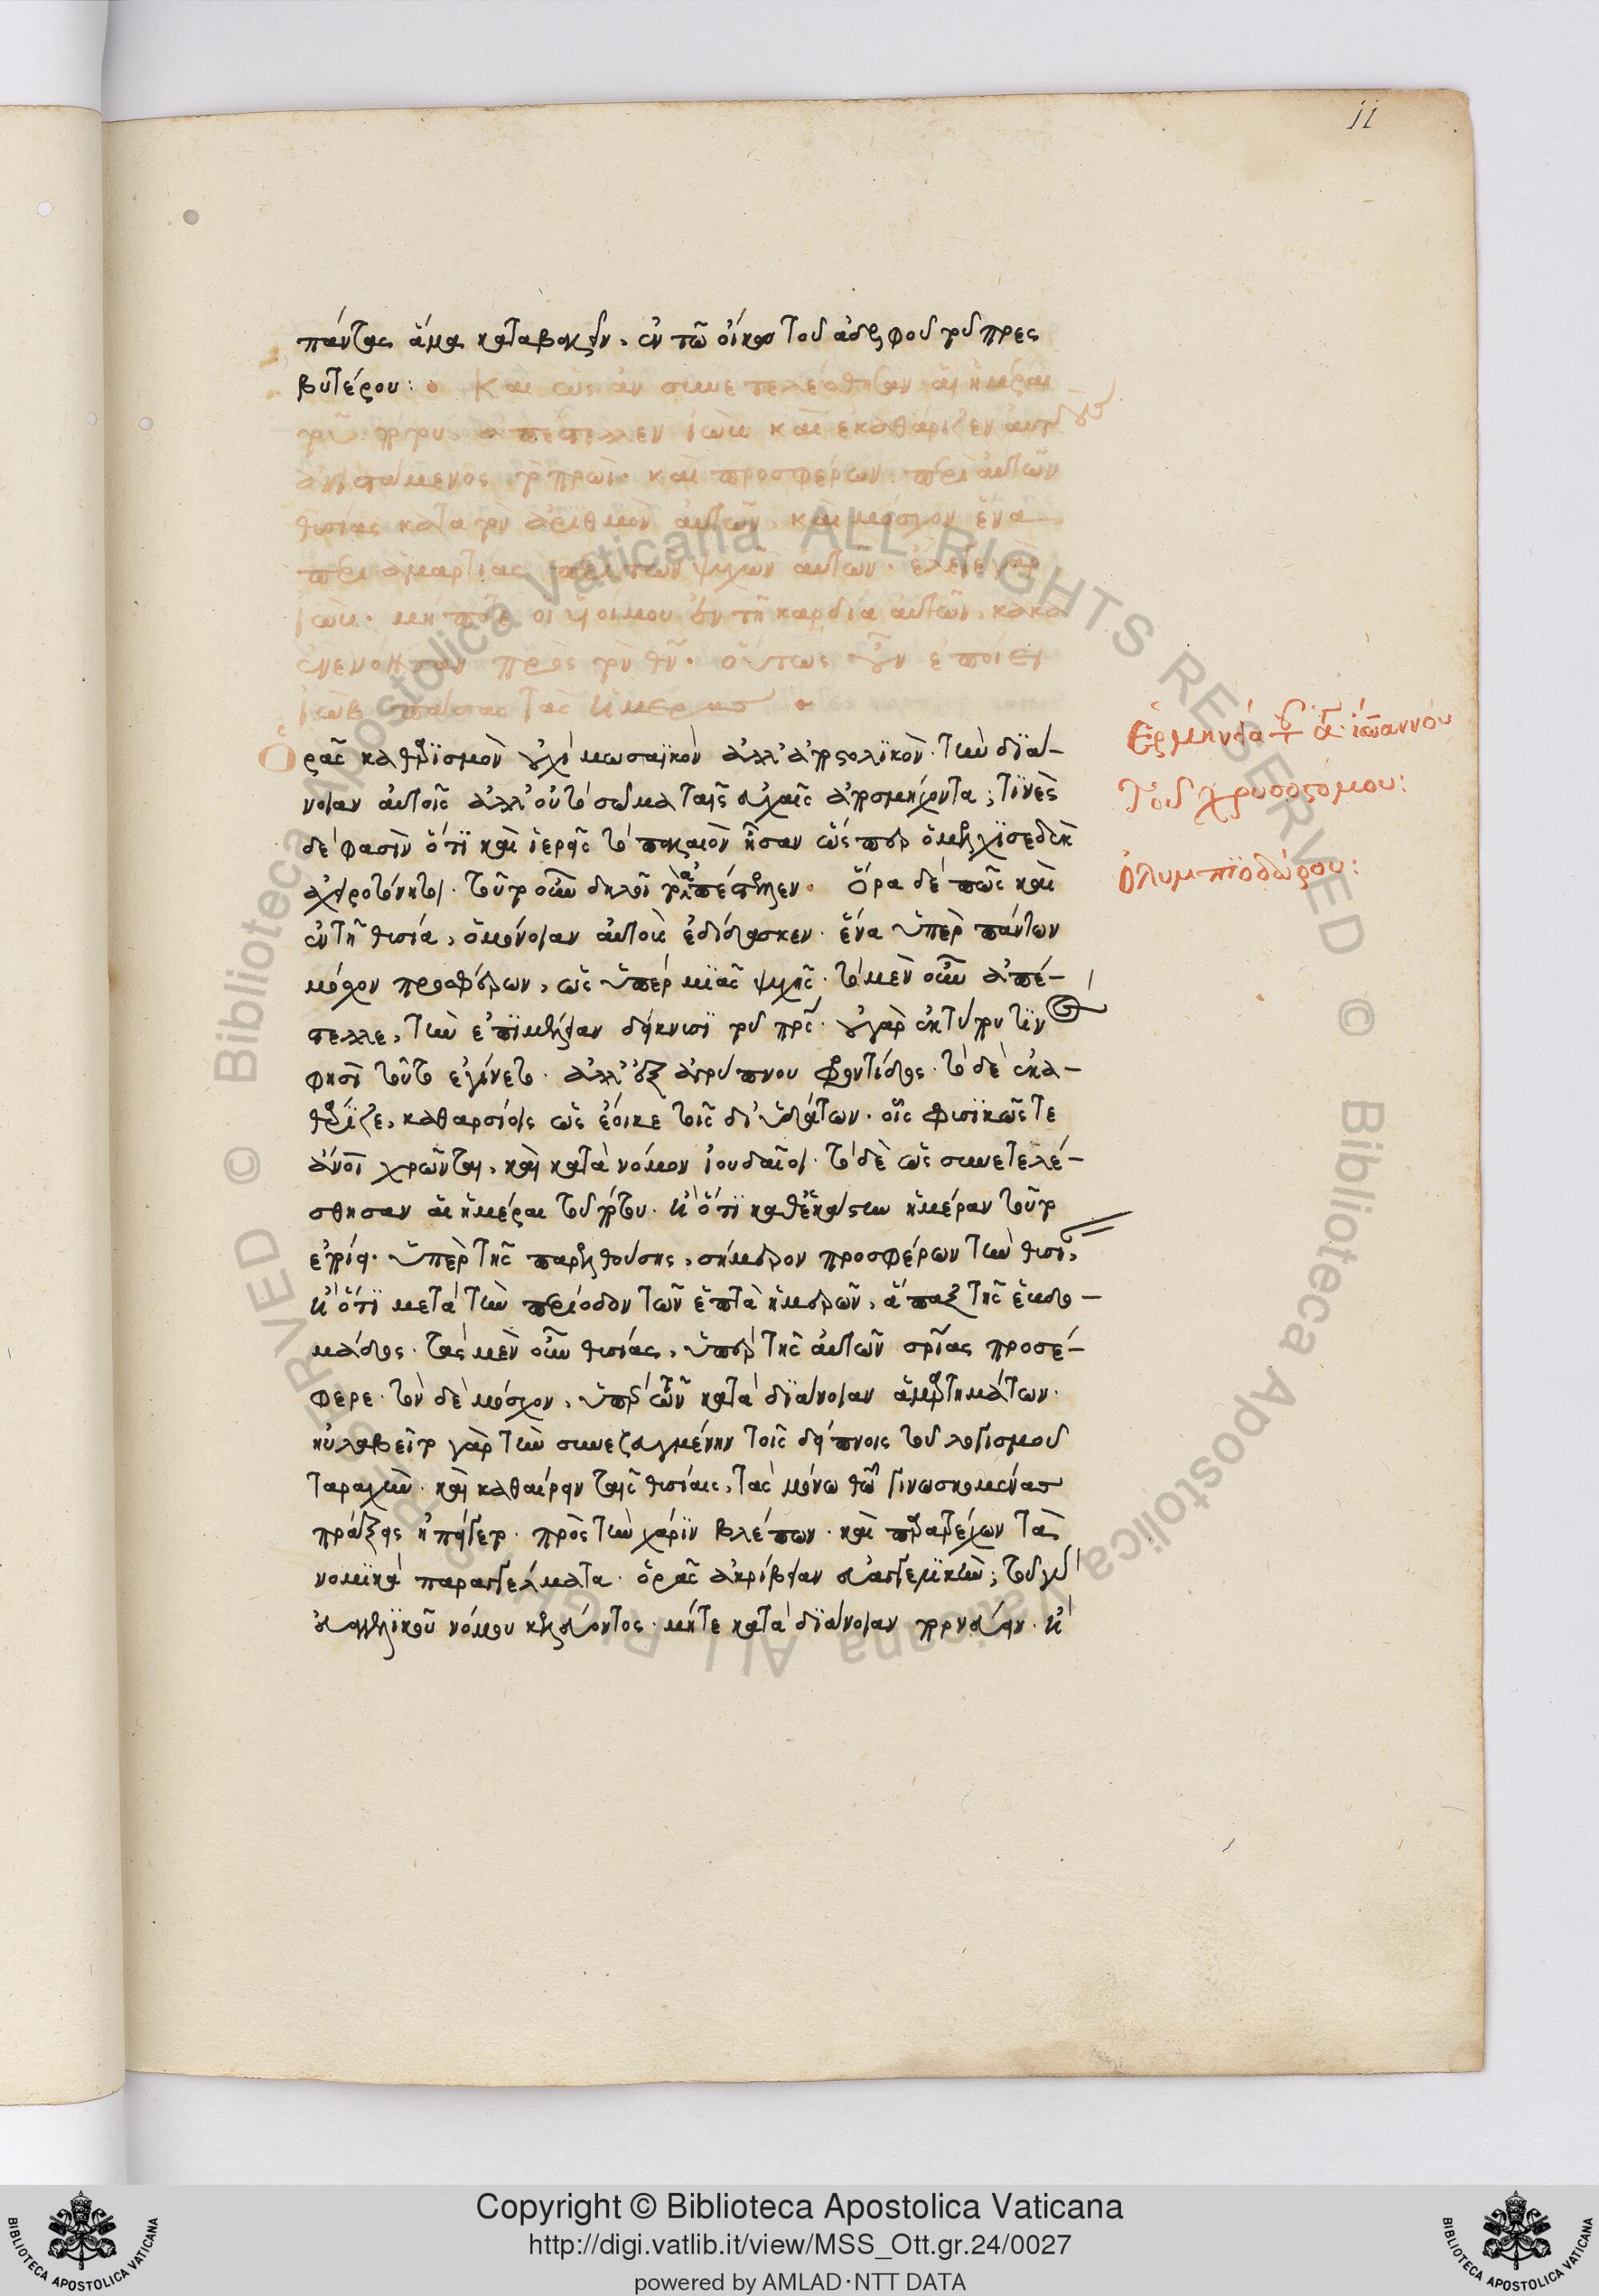 11
πάντας ἅμα καταβοηθῆν, ἐν τῶ οἴκω τοῦ ἀδελφοῦ τοῦ πρες
βυτέρου: Καὶ ὡς ἂν συνετελέσθησαν αἱ ἡμέραι
τοῦ πότου, ἀπέστελλεν ἰὼβ καὶ ἐκαθάριζεν αὐτοὺς
ἀνιστάμενος τὸ πρωΐ· καὶ προσφέρων περὶ αὐτῶν
θυσίας κατὰ τὸν ἀριθμὸν αὐτῶν, καὶ μόσχον ἕνα
περὶ ἁμαρτίας περὶ τῶν ψυχῶν αὐτῶν· ἔλεγε γὰρ
ἰώβ· μή ποτε οἱ υἱοί μου ἐν τῆ καρδία αὐτῶν, κακὰ
ἐνενόησαν πρὸς τὸν θν· οὕτως οὖν ἐποίει
ἰὼβ πάσας τὰς ἡμέρας
Ὁρᾶς καθαρισμὸν οὐχὶ μωσαϊκὸν ἀλλ' ἀποστολικόν· τὴν διά-
νοιαν αὐτοῖς ἀλλ' οὐ τὸ σῶμα ταῖς εὐχαῖς ἀποσμήχοντα; τινὲς
δέ φασιν ὅτι καὶ ἱερεῖς τὸ παλαιὸν ἦσαν ὥσπερ ὁ μελχισεδὲκ
ἀχειροτόνητοι· τοῦτο οὖν δηλοῖ τὸ ἀπέστειλεν. Ὅρα δὲ πῶς καὶ
ἐν τῆ θυσία, ὁμόνοιαν αὐτοὺς ἐδίδασκεν· ἕνα ὑπὲρ πάντων
μόσχον προσφέρων, ὡς ὑπὲρ μιᾶς ψυχῆς· τὸ μὲν οὖν ἀπέ-
στελλε, τὴν ἐπιμέλειαν δείκνυσι τοῦ πρς· οὐ γὰρ ἐκ τούτου τὶν
φησὶ τοῦτο ἐγίνετο· ἀλλ' ἐξ ἀγρύπνου φροντίδος· τὸ δὲ ἐκα-
θάριζε, καθαρσίοις ὡς ἔοικε τοῖς δι' ὑδάτων· οἷς φυσικῶς τε
ἄνοι χρῶνται, καὶ κατὰ νόμον ἰουδαῖοι· τὸ δὲ ὡς συνετελέ-
σθησαν αἱ ἡμέραι τοῦ πότου· ἢ ὅτι καθ' ἑκάστην ἡμέραν τοῦτο
ἐποίει· ὑπὲρ τῆς παρελθούσης, σήμερον προσφέρων τὴν θυσί,
ἢ ὅτι μετὰ τὴν περίοδον τῶν ἑπτὰ ἡμερῶν, ἅπαξ τῆς ἑβδο-
μάδος· τὰς μὲν οὖν θυσίας, ὑπὲρ τῆς αὐτῶν σρίας προσέ-
φερε· τὸν δὲ μόσχον, ὑπὲρ τῶν κατὰ διάνοιαν ἁμαρτημάτων·
ηὐλαβεῖτο γὰρ τὴν συνεζευγμένην τοῖς δείπνοις τοῦ λογισμοῦ
ταραχήν· καὶ καθαίρειν ταῖς θυσίαις, τὰς μόνω θῶ γινωσκομένας
πράξεις ἠπείγετο· πρὸς τὴν χάριν βλέπων· καὶ παρατρέχων τὰ
νομικὰ παραγγέλματα· ὁρᾶς ἀκρίβειαν εὐαγγελικήν; τοῦ γὰρ
εὐαγγελικοῦ νόμου κελεύοντος· μήτε κατὰ διάνοιαν πορνεύειν· ἢ
Ἑρμηνεία τοῦ ἁ ἰωάννου
τοῦ χρυσοστόμου:
ὀλυμπιοδώρου:
Copyright © Biblioteca Apostolica Vaticana
http://digi.vatlib.it/view/MSS_Ott.gr.24/0027
powered by AMLAD·NTT DATA